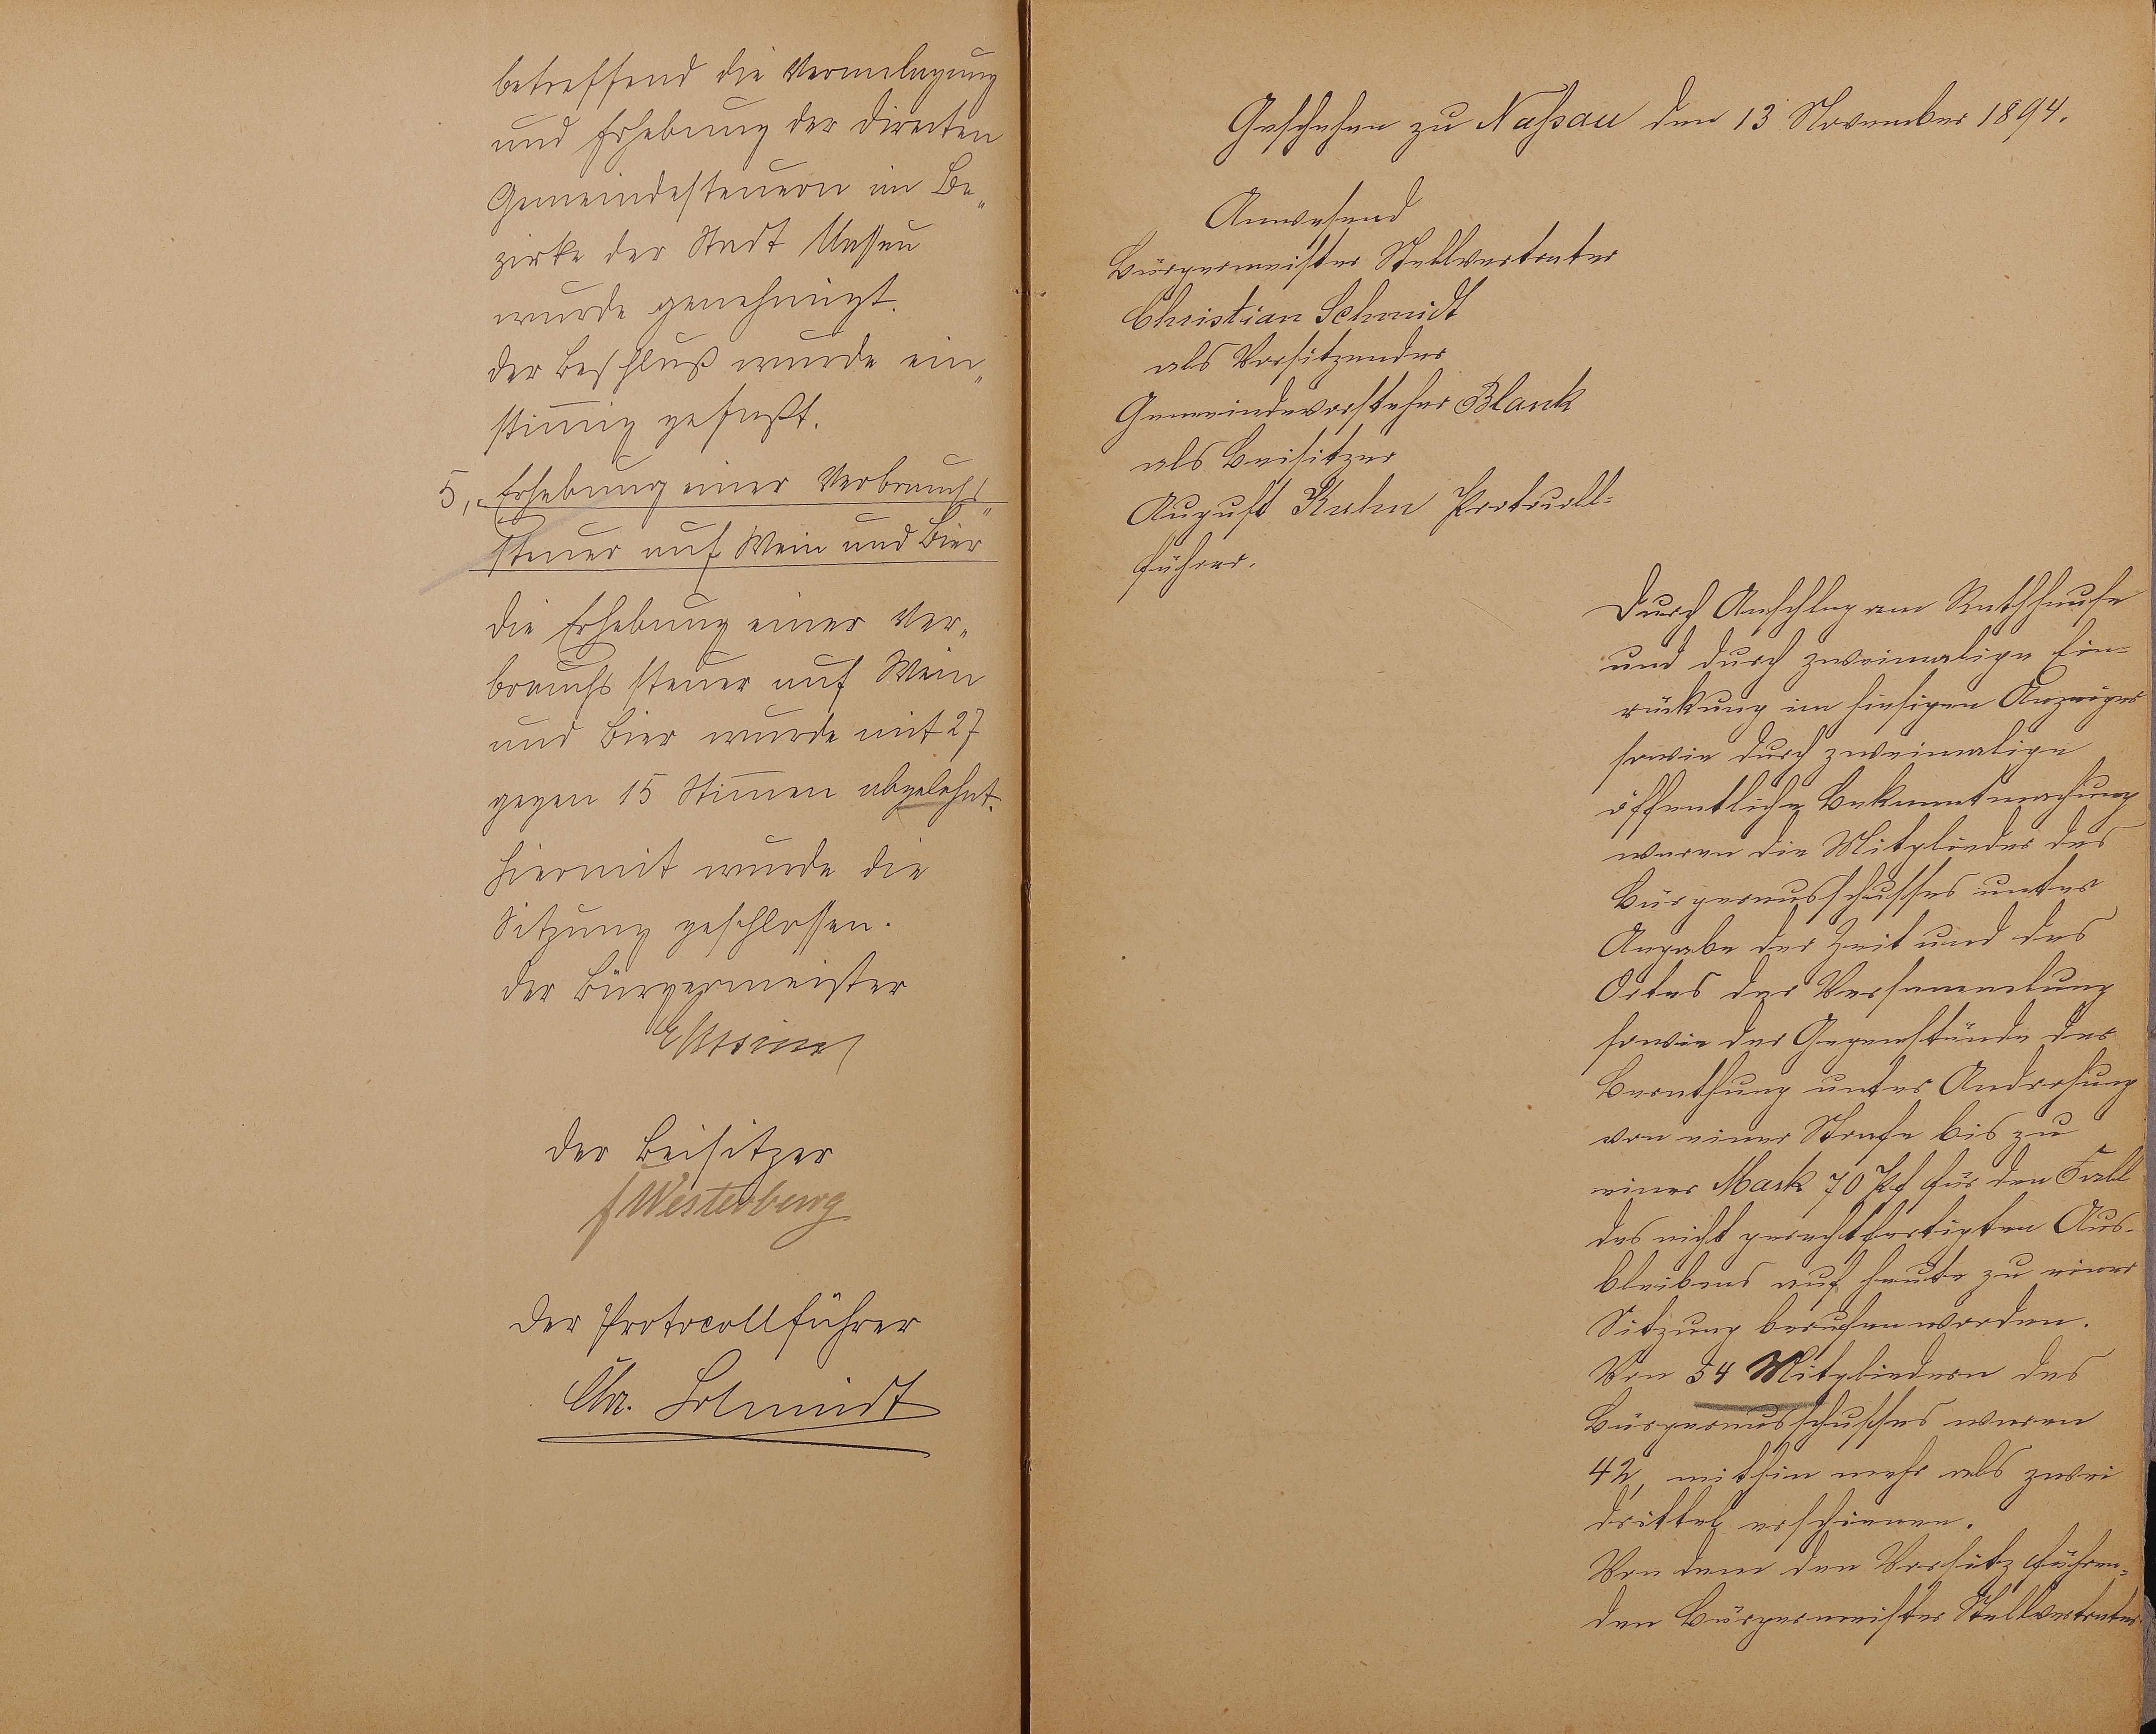 betreffend die Veranlagung
und Erhebung der directen
Gemeindesteuern im Be„
zirke der Stadt Nassau
wurde genehmigt.
der Beschluß wurde ein„
stim̅ig gefaßt.
5, Erhebung einer Verbrauchs„
steuer auf Wein und Bier
die Erhebung einer Ver„
brauchssteuer auf Wein
und Bier wurde mit 27
gegen 15 Stim̅en abgelehnt.
Hiermit wurde die
Sitzung geschlossen.
der Bürgermeister
der Beisitzer
Westerburg
der Protocollführer
Chr. Schmidt
Geschehen zu Naßau den 13 November 1894.
Anwesend
Bürgermeister Stellvertreter
Christian Schmidt
als Vorsitzender
Gemeindevorsteher Blank
als Beisitzer
August Kuhn Protocoll=
führer.
Durch Anschlag am Rathhause
und durch zweimalige Ein=
rückung im hiesigen Anzeiger
sowie durch zweimalige
öffentliche Bekanntmachung
waren die Mitglieder des
Bürgerausschusses unter
Angabe der Zeit und des
Ortes der Versammlung
sowie der Gegenstände der
Berathung unter Androhung
von einer Strafe bis zu
einer Mark 70 Pf für den Fall
des nicht gerechtfertigten Aus-
bleibens auf heute zu einer
Sitzung berufen worden.
Von 54 Mitgliedern des
Bürgerausschusses waren
42, mithin mehr als zwei
drittel erschienen.
Von dem den Vorsitz führen=
den Bürgermeister Stellvertreter